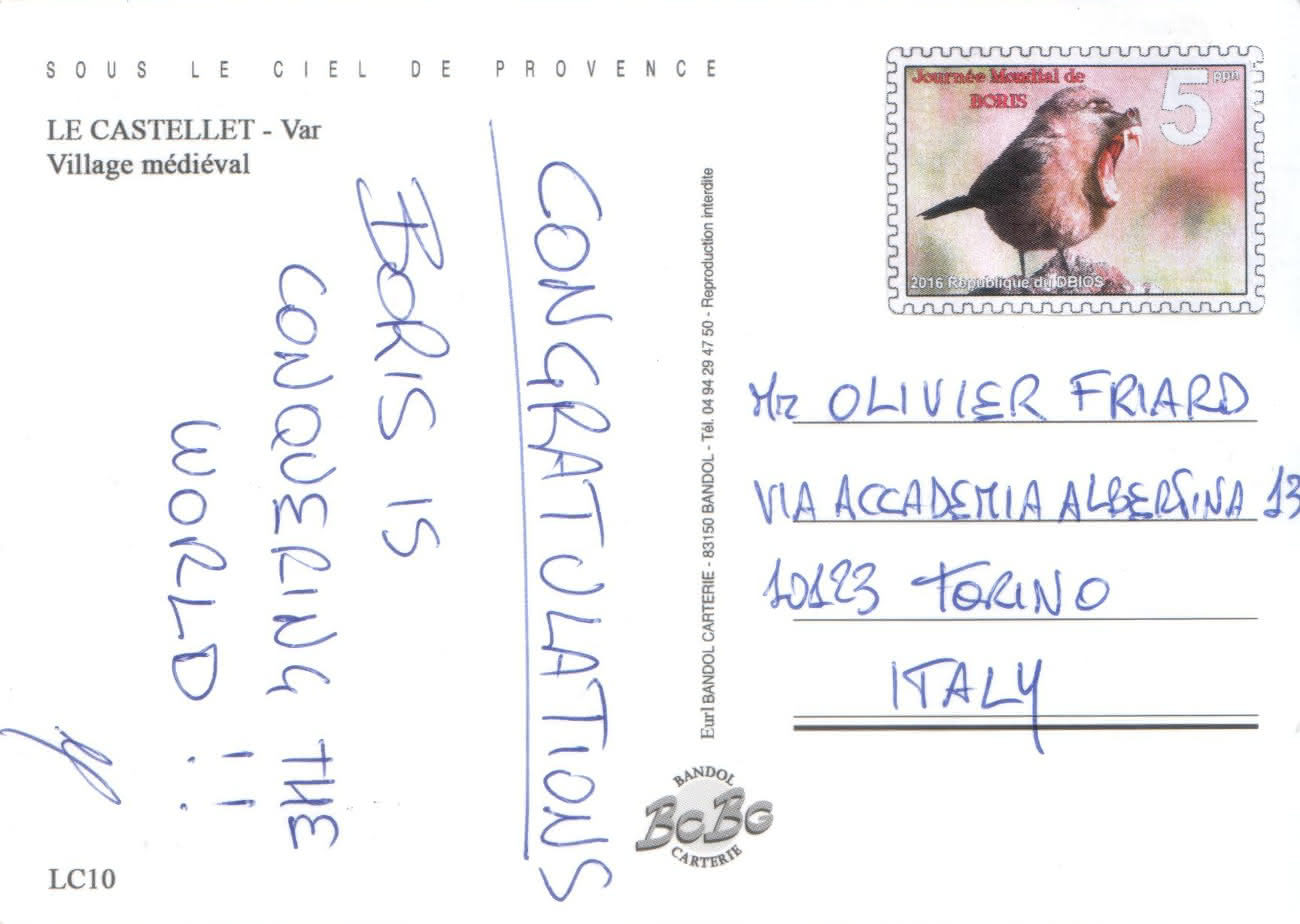 SOUS LE CIEL DE PROVENCE
LE CASTELLET - Var
Village médiéval
CONGRATULATIONS
BORIS IS
CONQUERING THE
WORLD !!
LC10
Eurl BANDOL CARTERIE - 83150 BANDOL - Tél. 04 94 29 47 50 - Reproduction interdite
BANDOL
BCBG
CARTERIE
Journée Mondial de
BORIS
5 pph
2016 République du DBIOS
Mr OLIVIER FRIARD
VIA ACCADEMIA ALBERTINA 13
10123 TORINO
ITALY